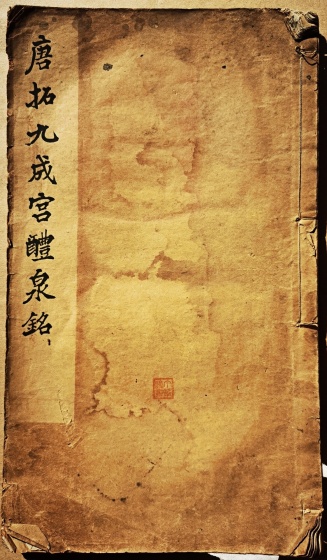 唐拓九成宮醴泉銘